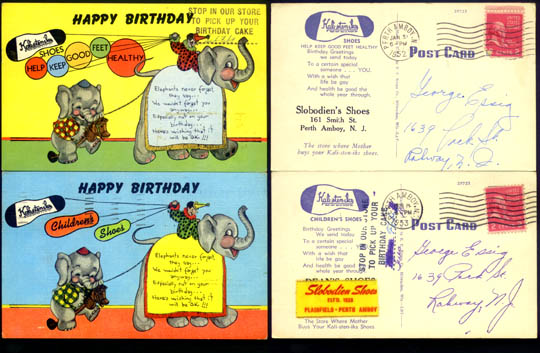 HAPPY BIRTHDAY
STOP IN OUR STORE
TO PICK UP YOUR
BIRTHDAY CAKE
Kali-sten-iks
SHOES
HELP
KEEP
GOOD
FEET
HEALTHY
Elephants never forget
they say...
We wouldn't forget you
anyway...
Especially not on your
birthday...
Here's wishing that it
will be OK !!!
Kali-sten-iks
SHOES
HELP KEEP GOOD FEET HEALTHY
Birthday Greetings
we send today
To a certain special
someone . . . YOU.
With a wish that
life be gay
And health be good the
whole year through.
Slobodien's Shoes
161 Smith St.
Perth Amboy, N. J.
The store where Mother
buys your Kali-sten-iks shoes.
PERTH AMBOY, N.J.
JAN 3
PM
1952
POST CARD
George Essig
1639 Park St.
Rahway N. J.
HAPPY BIRTHDAY
Kali-sten-iks
Children's
Shoes
Elephants never forget
they say...
We wouldn't forget you
anyway...
Especially not on your
birthday...
Here's wishing that it
will be OK !!!
Kali-sten-iks
CHILDREN'S SHOES
Birthday Greetings
We send today
To a certain special
someone
With a wish that
life be gay
And health be good
whole year through
STOP IN OUR STORE
TO PICK UP YOUR
BIRTHDAY CAKE
DEAN'S SHOES
Slobodien Shoes
ESTD. 1920
PLAINFIELD - PERTH AMBOY
The Store Where Mother
Buys Your Kali-sten-iks Shoes.
AMBOY, N.J.
PM
1953
POST CARD
George Essig
1639 Park St.
Rahway, N J